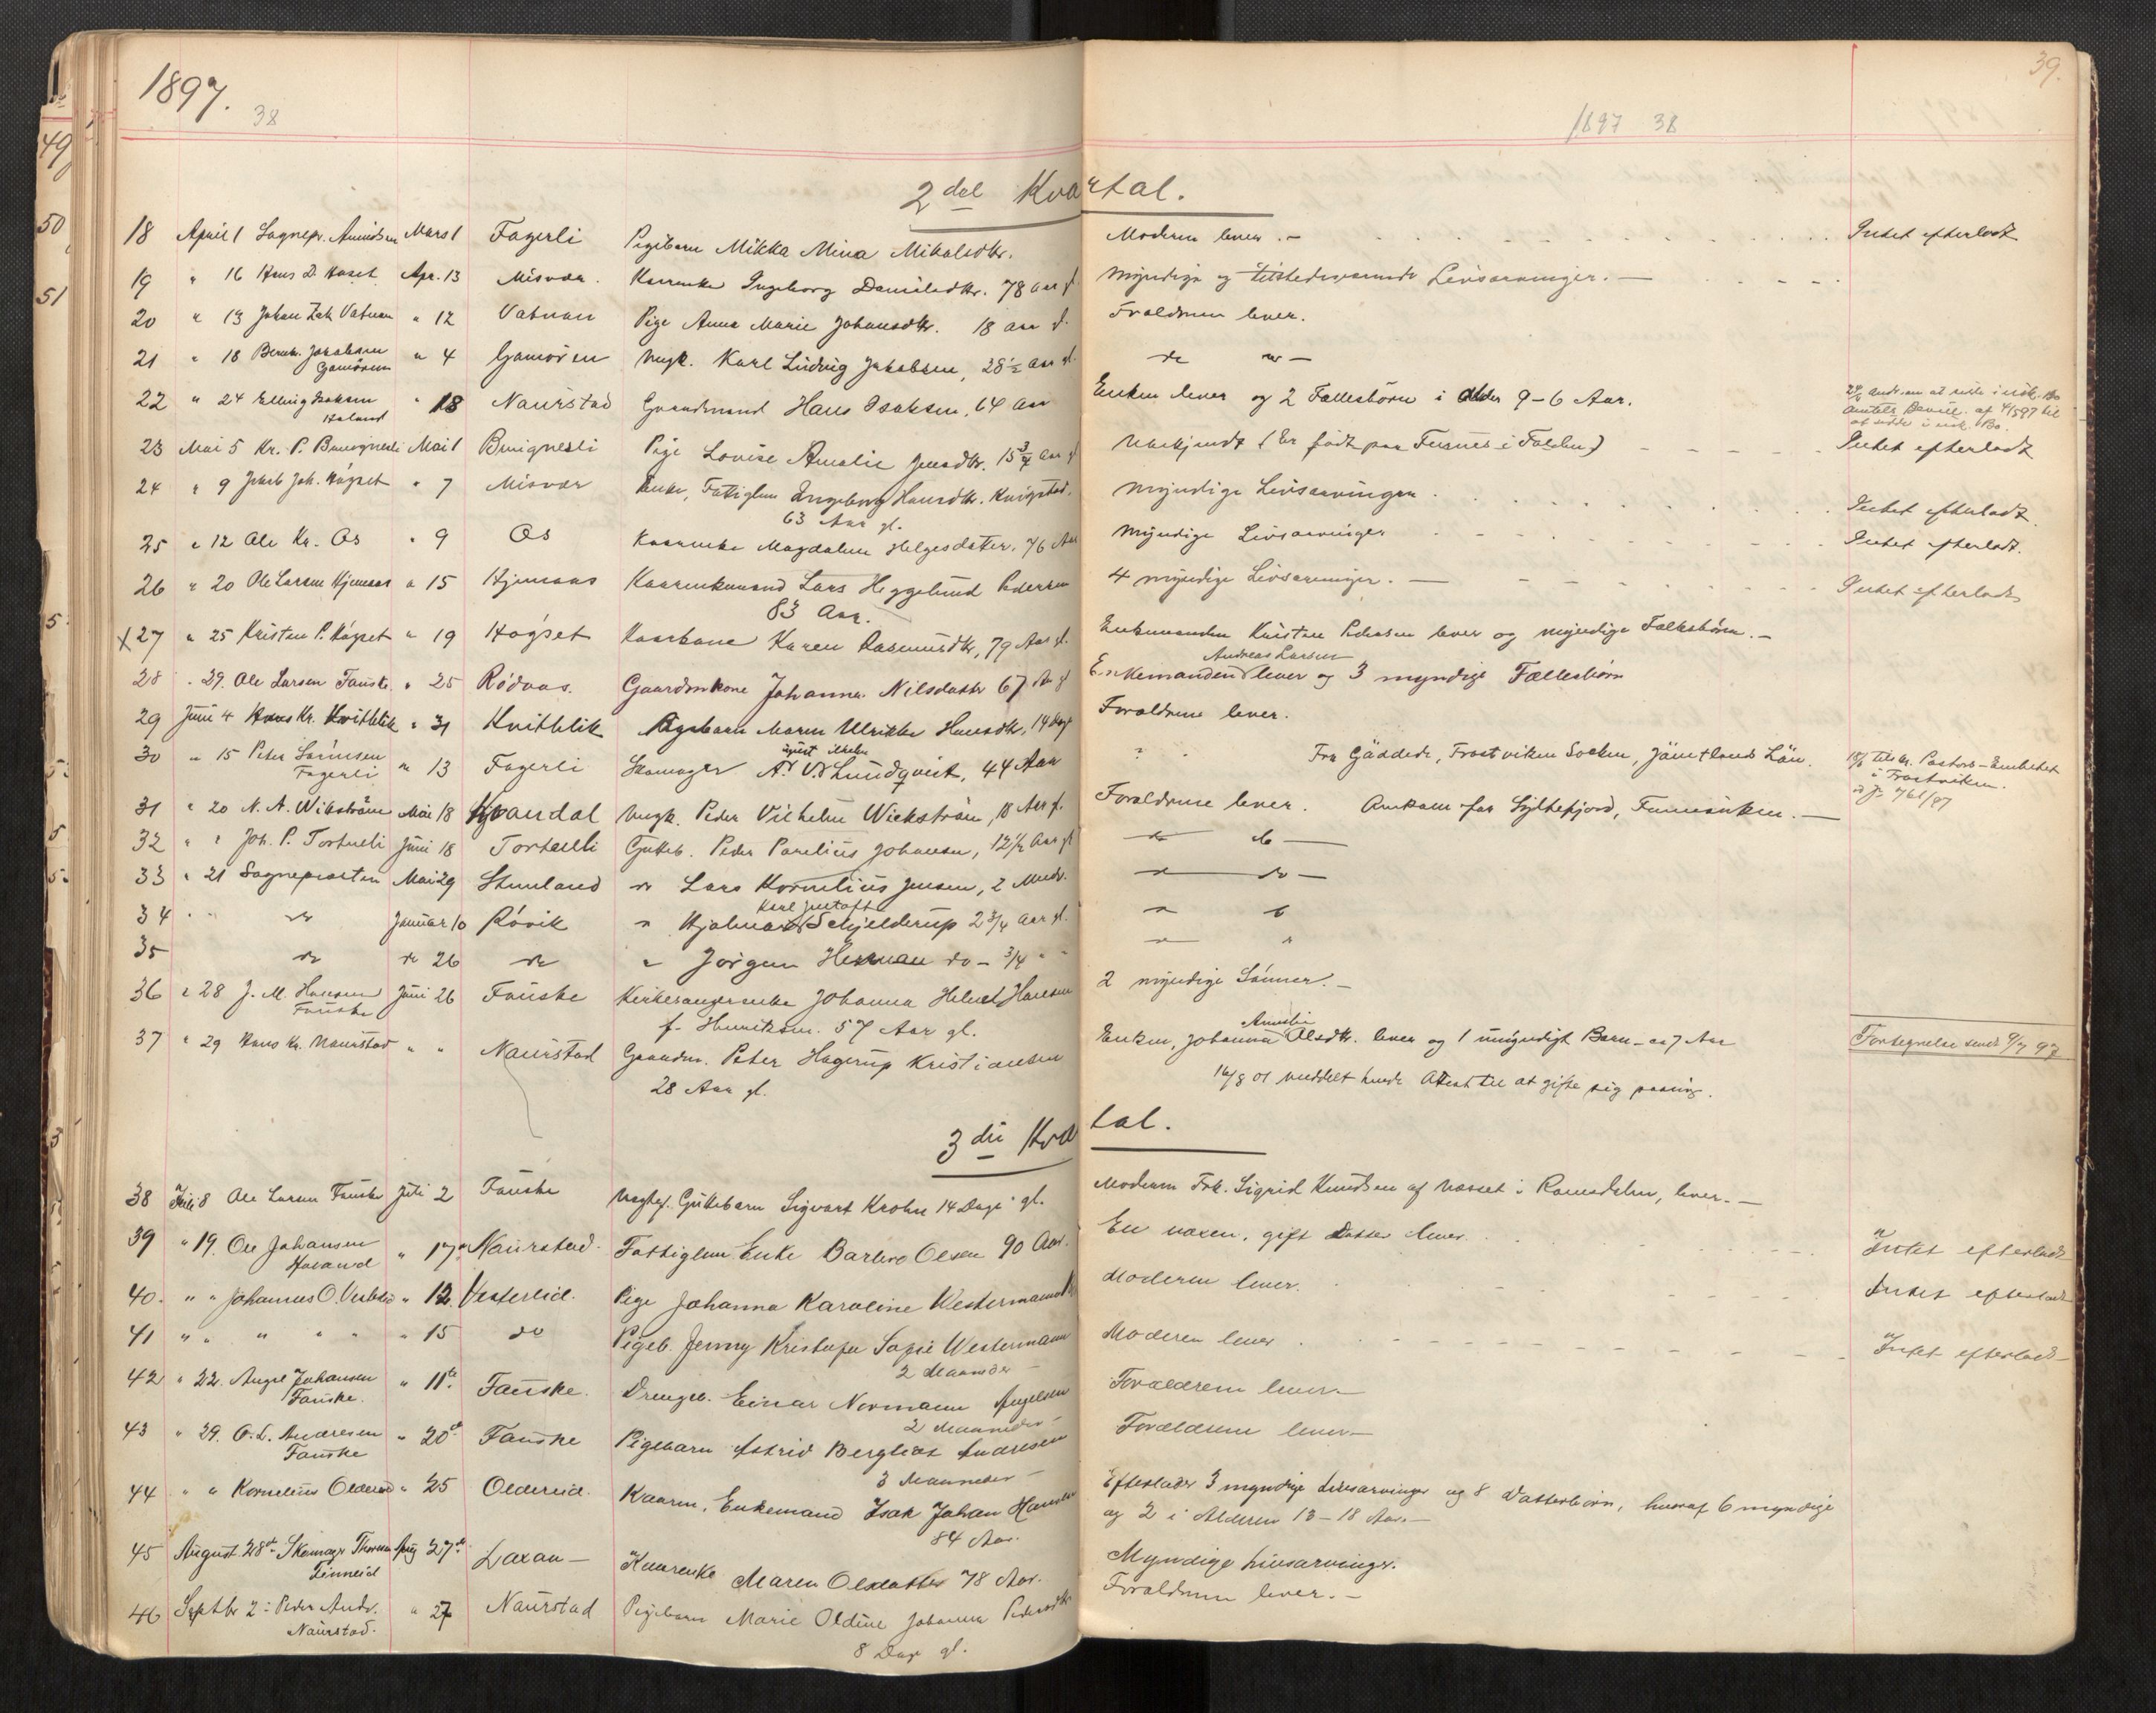 1897.
38
1897 38
39.
2det Kvartal.
18 April 1 Sognepr. Amundsen Mars 1 Fagerli Pigebarn Mikka Mina Mikalsdtr. Moderen lever. - Intet efterladt
19 " 16 Hans D. Apr. 13 Misvær. Kaarenke Ingeborg Danielsdtr. 78 Aar gl. Myndige og tilstedeværende Livsarvinger. -
20 " 13 Johan Zak Vatnan " 12 Vatnan Pige Anna Marie Johansdtr. 18 Aar gl. Foraldrene lever.
21 " 18 Bernh. Jakobsen " 4 Gamøren Ungk. Karl Ludvig Jakobsen, 28½ Aar gl. do do -
Gamøren
22 " 24 Elling Isaksen " 18 Naurstad Gaardmand Hans Isaksen, 64 Aar Enken lever og 2 Fællesbørn i Alder 9-6 Aar.
af 4/5 97 til
at sidde i usk. Bo.
23 Mai 5 Kr. P. Bringsli Mai 1 Pige Lovise Amalie Jensdtr. 15¾ Aar gl Ubekjendt (Er født paa Furnes i Folden) Intet efterladt
24 " 9 Jakob Joh. Høgset " 7 Misvær Enke, Fattiglem Ingeborg Hansdtr. Intet efterladt.
63 Aar gl. Myndige Livsarvinger.
25 " 12 Ole Kr. Os " 9 Os Kaarenke Magdalene Helgesdatter, 76 Aar Myndige Livsarvinger Intet efterladt.
26 " 20 Ole Larsen Hjemaas " 15 Hjemaas Kaarenkemand Lars Heggelund Pedersen 4 myndige Livsarvinger. - Intet efterladt
83 Aar.
x 27 " 25 Kristen P. Høgset " 19 Høgset Kaarkone Karen Rasmusdtr, 79 Aar gl. Enkemanden Kristen Pedersen lever og myndige Fællesbørn. -
Andreas Larsen
28 " 29. Ole Larsen Fauske " 25 Rødaas. Gaardmkone Johanna Nilsdatter 67 Aar gl Enkemanden lever og 3 myndige Fællesbørn
29 Juni 4 Hans Kr. Kvitblik " 31 Kvitblik Pigebarn Maren Ulrikke Hansdtr, 14 Dage Foraldrene lever.
30 " 15 Peter Sørensen " 13 Fagerli Skomager A. V. Lundqvist, 44 Aar ? Fra Gäddede, Frostviken Socken, Jämtlands Län. Tilskr. Pastors-Embedet
Fagerli i Frostviken.
31 " 20 N. A. Wikström Mai 18 Kvandal Ungk. Peder Vilhelm Wickström, 18 Aar gl. Foraldrene lever. Omkom paa Syltefjord, Finmarken. -
32 " " Joh. P. Tortenli Juni 18 Tortenli Gutteb. Peder Parelius Johansen, 12½ Aar gl do do -
33 " 21 Sognepresten Mai 29 Stenland do Lars Kornelius Jensen, 2 Mndr. do do -
Karl Gustaft
34 " do Januar 10 Røvik " Hjalmar Schjelderup 2¾ Aar gl. " "
35 do do 26 do " Jørgen Herman do - ¾ " " " "
36 " 28 J. M. Hansen Juni 26 Fauske Kirkesangerenke Johanna Helene Hansen 2 myndige Sønner. -
Fauske f. Henriksen. 57 Aar gl.
Amalie
37 " 29 Hans Kr. Naurstad " " Naurstad Gaardm. Peter Hagerup Kristiansen Enken, Johanna Olsdtr. lever og 1 umyndigt Barn - ca 7 Aar Fortegnelse sendt 9/7 97
28 Aar gl. 16/8 01 meddelt hende Attest til at gifte sig paany.
3die Kvatal.
38 Juli 8 Ole Larsen Fauske Juli 2 Fauske Uægtef. Guttebarn Sigvart Krohn 14 Dage gl. Moderen Frk. Sigrid Knudsen af Næsset i Romsdalen, lever. -
39 " 19. Ole Johansen " 17. Naurstad. Fattiglem Enke Barbro Olsen 90 Aar. En voxen, gift Datter lever. Intet efterladt
Høland
40. " " Johannes O. Vesterli " 12. Vestereid. Pige Johanna Karoline Westermann Moderen lever. Intet efterladt
41 " " " " " " 15 do Pigeb. Jenny Kristofa Sofie Westermann Moderen lever Intet efterladt -
2 Maaneder -
42 " 22. Angel Johansen " 11te Fauske. Drengeb. Einar Normann Angelsen Forældrene lever. -
Fauske. 2 Maaneder -
43 " 29. O. L. Andresen " 20de Fauske Pigebarn Astrid Bergliot Andresen Forældrene lever -
Fauske 3 Maaneder -
44 " " Kornelius Oldereid " 25 Oldereid. Kaarm. Enkemand Isak Johan Hansen Efterlader 3 myndige Livsarvinger og 8 Datterbørn, hvoraf 6 myndige
84 Aar. og 2 i Alderen 13-18 Aar. -
45 August 28de Skomager Thoresen Aug 27de Laxaa - Kaarenke Maren Olsdatter 78 Aar. Myndige Livsarvinger.
Finneid
46 Septbr 2: Peder Andr. " 27 Naurstad Pigebarn Marie Oldine Johanna Pedersdtr Foraldrene lever. -
Naurstad. 8 Dage gl.